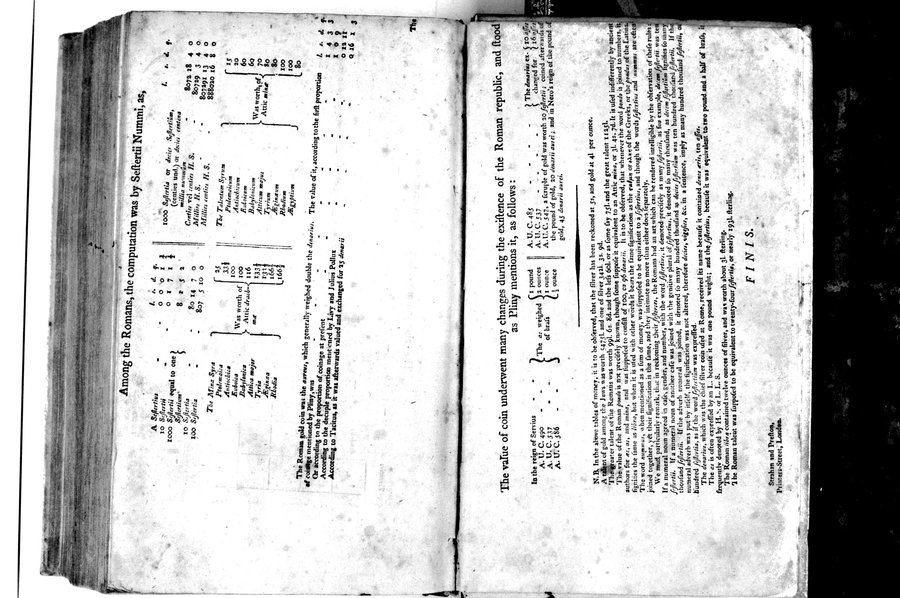 Among the Romans, the computation was by Seſtertii Nummi; as,
l. s. d. q.
A Seſtertius
10 Seſtertii
100 Seſtertii
1000 Seſtertii equal to one Seſtertium
10 Seſtertia
100 Seſtertia
80 14 7 0
807 5 10 0
l. s. d. q.
1000 Seſtertia or decies Seſtertium,
(centies und.) or decies centena
millia nummûm
8072 18 4 0
Centies vel centies H. S.
80729 3 4 0
Millies H. S.
807291 13 4 0
Millies centies H. S.
888020 16 8 0
The Mina Syra
Ptolemaica
Antiochica
Euboica
Babylonica
Attica major
Tyria
Æginæa
Rhodia
Was worth of Attic drachmæ
25
33⅓
100
100
116
133⅓
133⅓
166⅔
166⅔
The Talentum Syrum
Ptolemaicum
Antiochicum
Euboicum
Babylonicum
Atticum majus
Tyrium
Æginæum
Rhodium
Ægyptium
Was worth, of Attic minæ
15
20
60
60
70
80
80
100
100
80
The Roman gold coin was the aureus, which generally weighed double the denarius. The value of it, according to the firſt proportion
of coinage mentioned by Pliny, was
l. s. d. q.
1 4 3
Or according to the proportion of coinage at preſent
1 0 9
According to the decuple proportion mentioned by Livy and Julius Pollux
0 12 11
According to Tacitus, as it was afterwards valued and exchanged for 25 denarii
0 16 1 3
The
The value of coin underwent many changes during the exiſtence of the Roman republic, and ſtood
as Pliny mentions it, as follows:
In the reign of Servius
A. U. C. 490
A. U. C. 537
A. U. C. 586
The as weighed
2 pound
2 ounces
1 ounce
½ ounce
of braſs
A. U. C. 485
A. U. C. 537
The denarius exchanged for
10 aſſes
16 aſſes
A. U. C. 547, a ſcruple of gold was worth 20 ſeſtertii; coined afterwards of
the pound of gold, 20 denarii aurei; and in Nero's reign of the pound of
gold, 45 denarii aurei.
N. B. In the above tables of money, it is to be obſerved, that the ſilver has been reckoned at 5s. and gold at 4l per ounce.
A talent of gold among the Jews was worth 5475l. and one of ſilver 342l. 3s. 9d.
The greater talent of the Romans was worth 99l. 6s. 8d. and the leſs 60l. or as ſome ſay 75l. and the great talent 1125l.
The value of the Roman pondo is not preciſely known, though ſome ſuppoſe it equivalent to an Attic mina, or 3l. 4s. 7d. It is uſed indifferently by ancient
authors for æs, as, and mina, and was ſuppoſed to conſiſt of 100, or 96 denarii. It is to be obſerved, that whenever the word pondo is joined to numbers, it
ſignifies the ſame as libra, but when it is uſed with other words it bears the ſame ſignification as the
of the Greeks, or the pondus of the Latins.
The word nummus, when mentioned as a ſum of money, was ſuppoſed to be equivalent to a ſeſtertius, and though the words ſeſtertius and nummus are often
joined together, yet their ſignification is the ſame, and they intimate no more than either does ſeparately.
We muſt particularly remark, that in reckoning their ſeſterces, the Romans had an art which can be rendered intelligible by the obſervation of theſe rules:
If a numeral noun agreed in caſe, gender, and number, with the word ſeſtertius, it denoted preciſely as many ſeſtertii, as for example, decem ſeſtertii was ten
ſeſtertii. If a numeral noun of another caſe was joined with the genitive plural of ſeſtertius, it denoted ſo many thouſand, as decem ſeſtertium ſignifies ſo many
thouſand ſeſtertii. If the adverb numeral was joined, it denoted ſo many hundred thouſand as decies ſeſtertium was ten hundred thouſand ſeſtertii. If the
numeral adverb was put by itſelf, the ſignification was not altered, therefore decies, vigeſies, &c. in a ſentence, imply as many hundred thouſand ſeſtertii, or
hundred ſeſtertia, as if the word ſeſtertium was expreſſed.
The denarius, which was the chief ſilver coin uſed at Rome, received its name becauſe it contained denos æris, ten aſſes.
The as is often expreſſed by an L. becauſe it was one pound weight; and the ſeſtertius, becauſe it was equivalent to two pound and a half of braſs, is
frequently denoted by H. S. or L. L. S.
The Roman libra contained twelve ounces of ſilver, and was worth about 3l. ſterling.
The Roman talent was ſuppoſed to be equivalent to twenty-four ſeſtertia, or nearly 193l. ſterling.
F I N I S.
Strahan and Preſton,
Printers-Street, London.